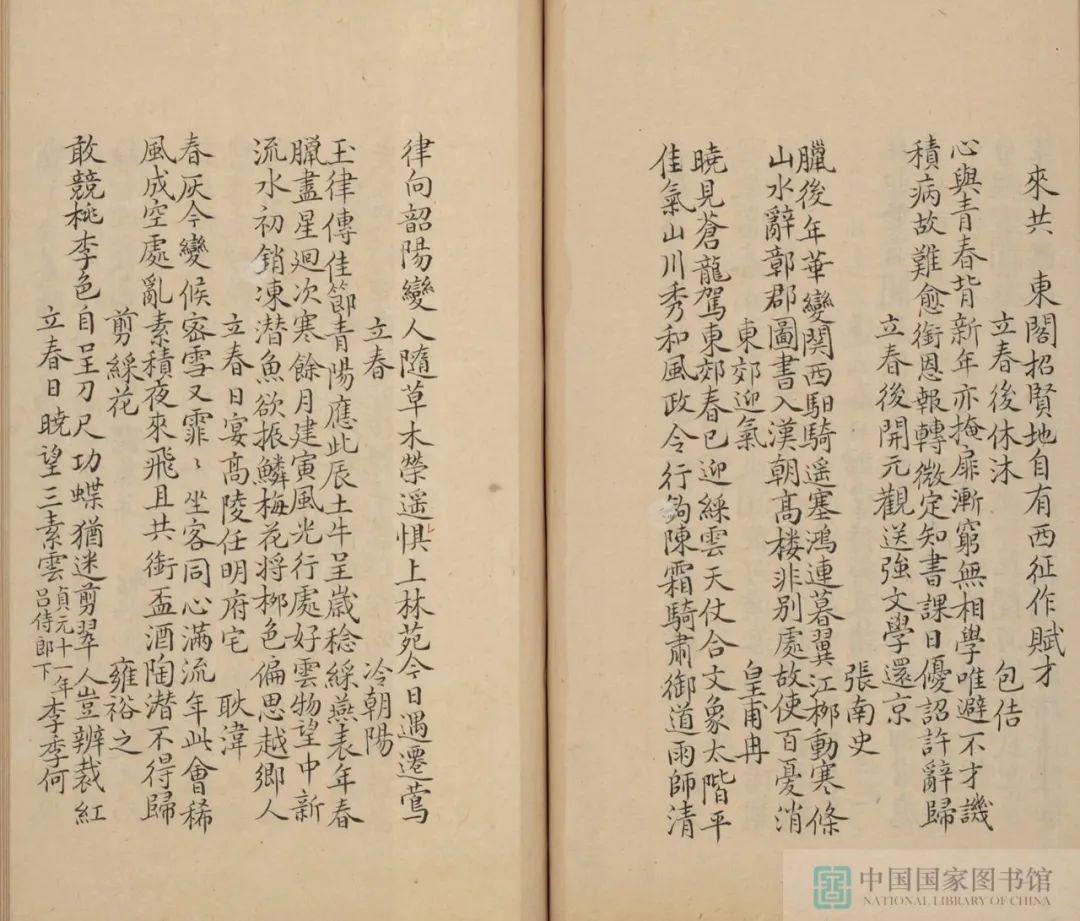 來共　東閣招賢地自有西征作賦才
立春後休沐　包佶
心與青春背新年亦掩扉漸窮無相學唯避不才譏
積病故難愈銜恩報轉微定知書課日優詔許辭歸
立春後開元觀送強文學還京
張南史
臘後年華變関西馹騎遥塞鴻連暮翼江栁動寒條
山水辭鄣郡圖書入漢朝高楼非别處故使百憂消
東郊迎氣　皇甫冉
曉見蒼龍駕東郊春已迎綵雲天仗合文象太階平
佳氣山川秀和風政令行夠陳霜騎肅御道雨師清
律向韶陽變人隨草木榮遥惧上林苑今日遇遷鶯
立春　冷朝陽
玉律傳佳節青陽應此辰土牛呈嵗稔綵燕表年春
臘盡星迴次寒餘月建寅風光行處好雲物望中新
流水初銷凍潜魚欲振鱗梅花将栁色偏思越鄉人
立春日宴高陵任明府宅　耿湋
春灰今變候密雪又霏〻坐客同心滿流年此會稀
風成空處亂素積夜來飛且共銜盃酒陶潜不得歸
剪綵花　雍裕之
敢競桃李色自呈刀尺功蝶猶迷剪翠人豈辨裁紅
立春日曉望三素雲貞元十一年吕侍郎下　李季何
中国国家图书馆
NATIONAL LIBRARY OF CHINA